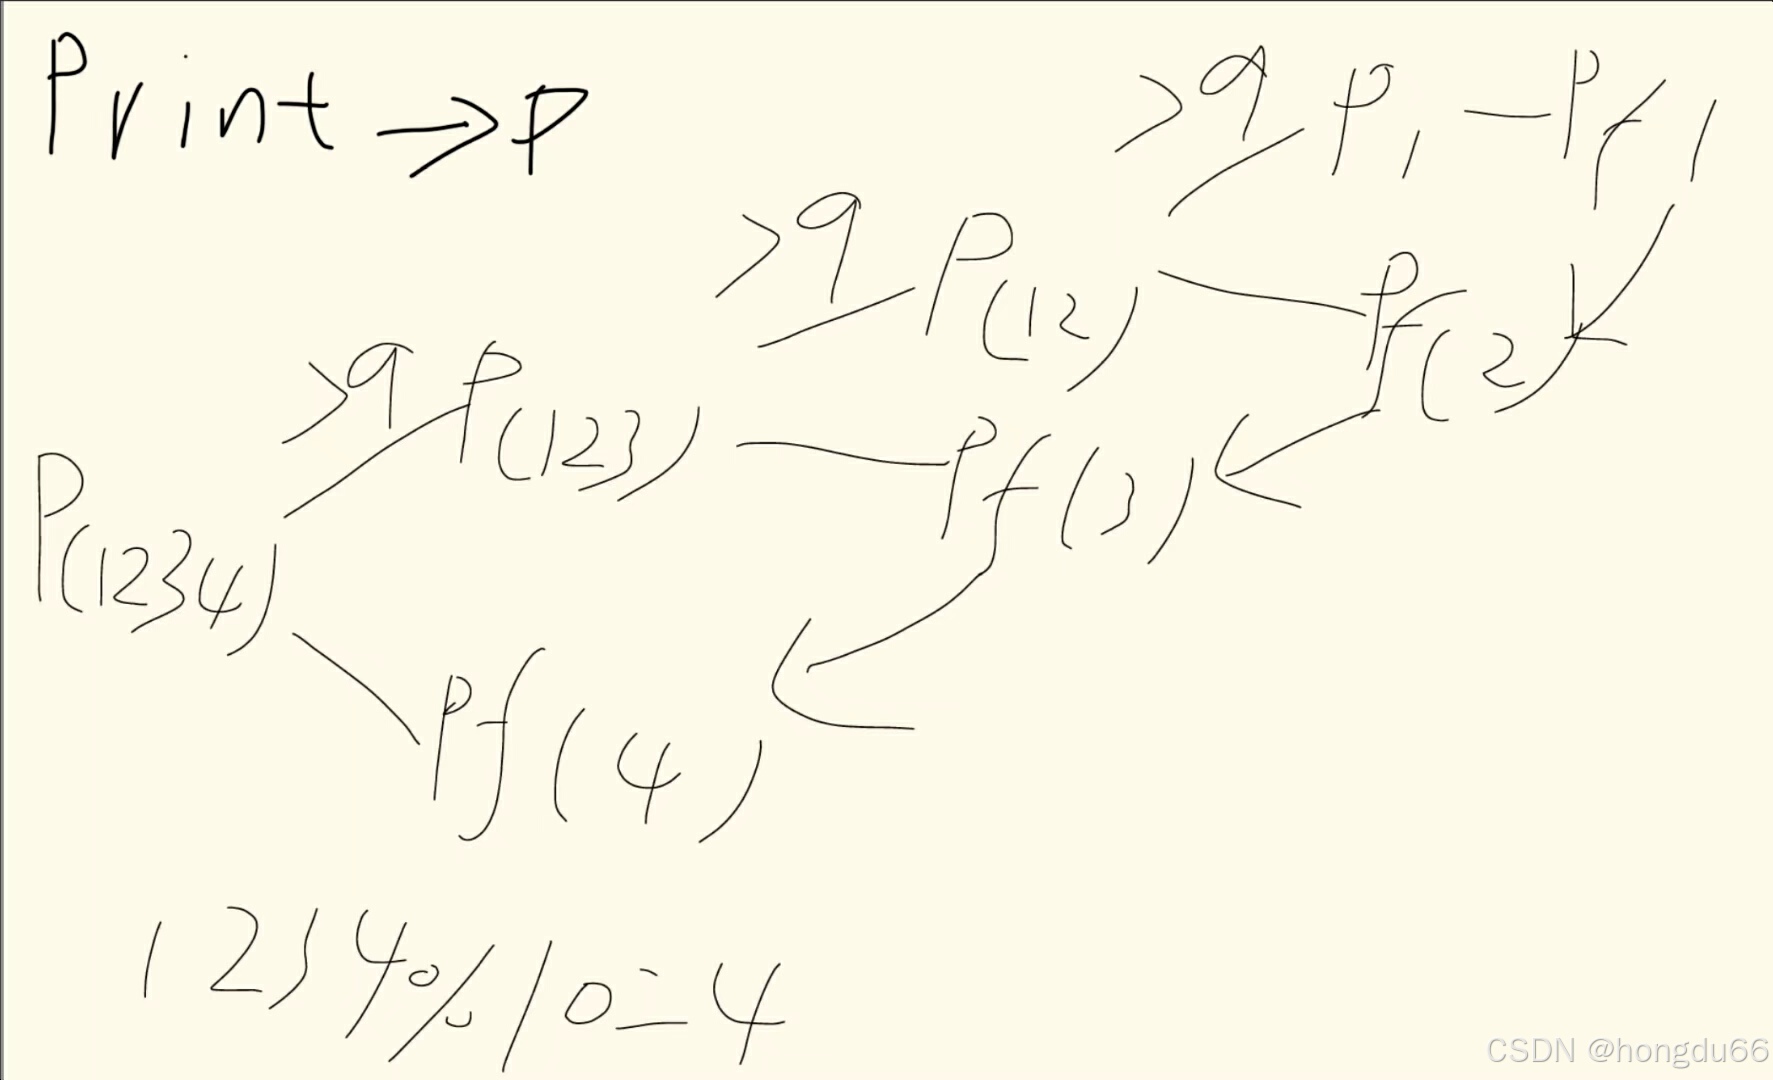 Print → P
>9 P1 — Pf1
>9 P(12) — Pf(2)
>9 P(123) — Pf(3)
P(1234)
Pf(4)
1234%10=4
CSDN @hongdu66